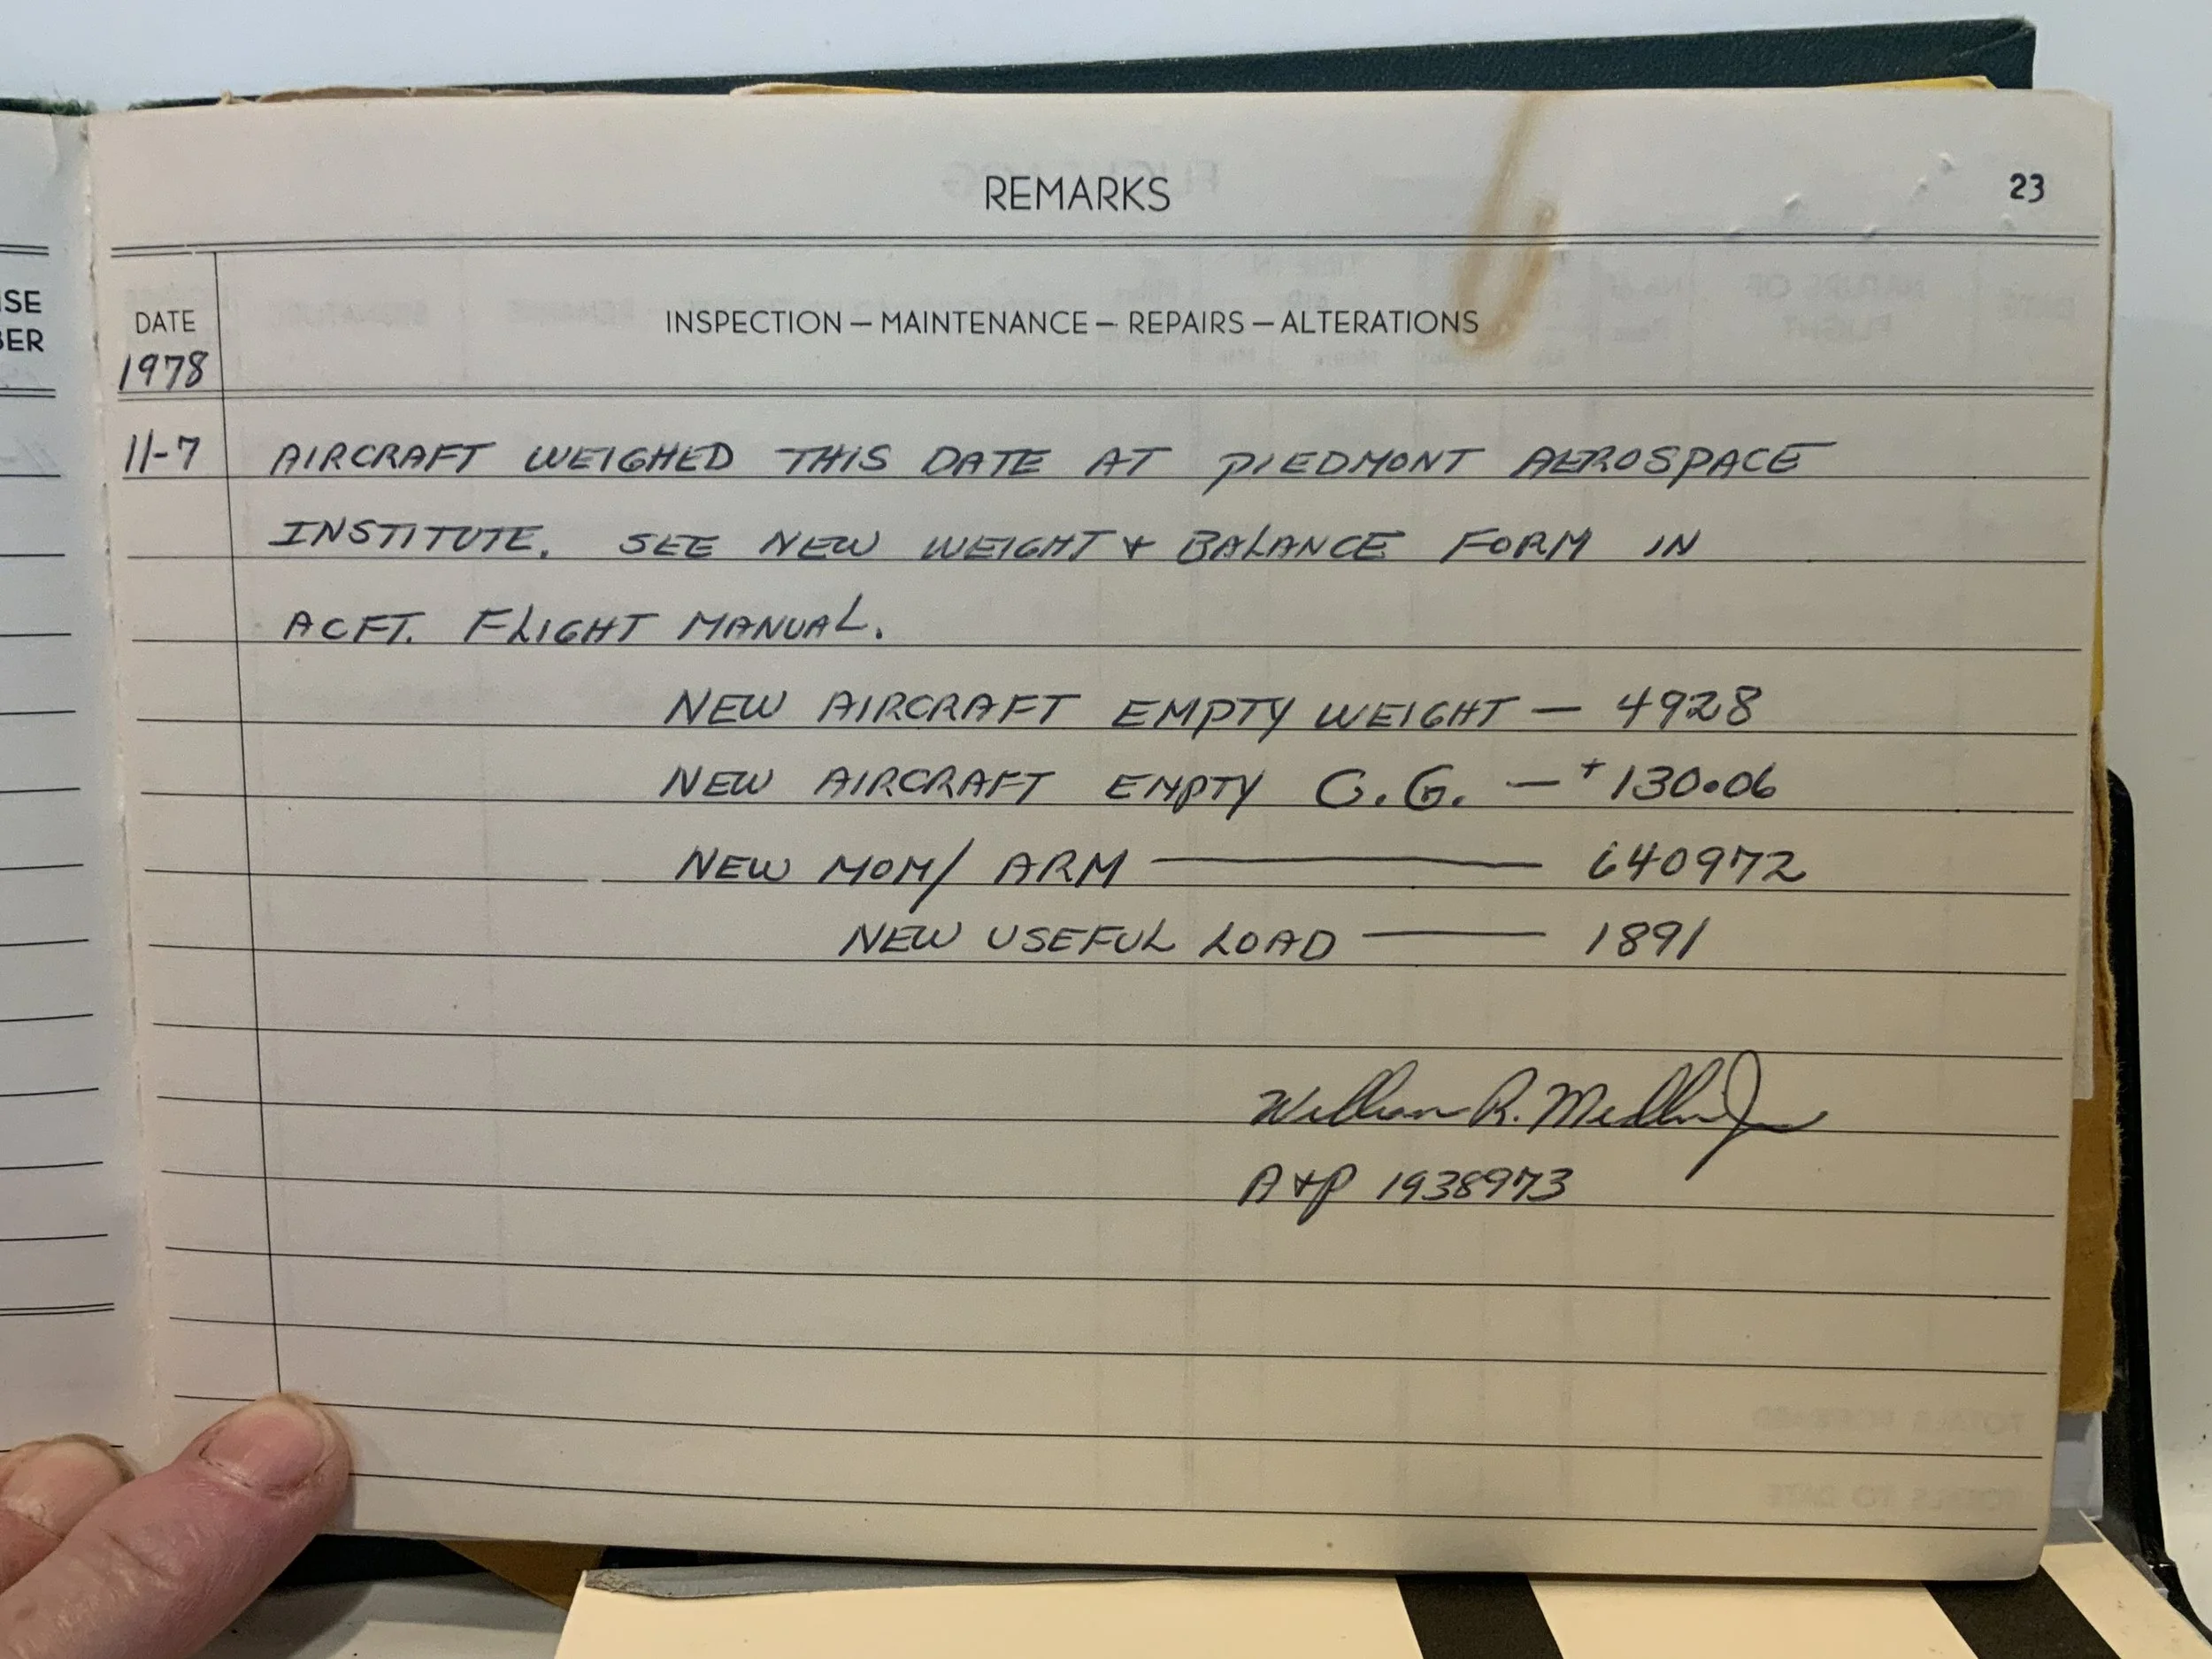 REMARKS
23
ISE
BER
DATE
1978
INSPECTION — MAINTENANCE — REPAIRS — ALTERATIONS
11-7 AIRCRAFT WEIGHED THIS DATE AT PIEDMONT AEROSPACE
INSTITUTE. SEE NEW WEIGHT & BALANCE FORM IN
ACFT. FLIGHT MANUAL.
NEW AIRCRAFT EMPTY WEIGHT — 4928
NEW AIRCRAFT EMPTY C.G. — +130.06
NEW MOM/ ARM — 640972
NEW USEFUL LOAD — 1891
William R. Medlin Jr
A&P 1938973